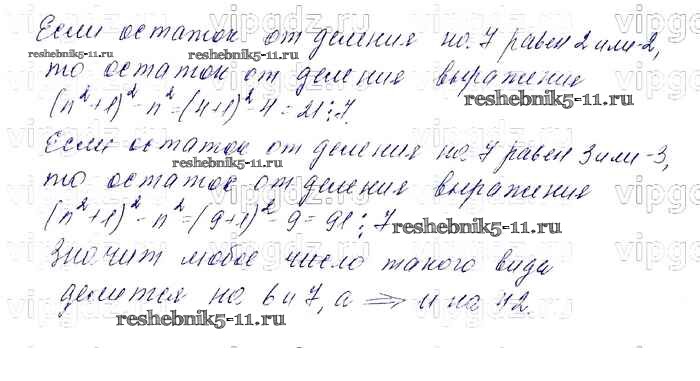 Если остаток от деления на 7 равен 2 или -2,
то остаток от деления выражения
(n²+1)² - n² = (4+1)² - 4 = 21 ⋮ 7.
Если остаток от деления на 7 равен 3 или -3,
то остаток от деления выражения
(n²+1)² - n² = (9+1)² - 9 = 91 ⋮ 7
Значит любое число такого вида
делится на 6 и 7, а ⇒ и на 42.
reshebnik5-11.ru
reshebnik5-11.ru
reshebnik5-11.ru
reshebnik5-11.ru
reshebnik5-11.ru
reshebnik5-11.ru